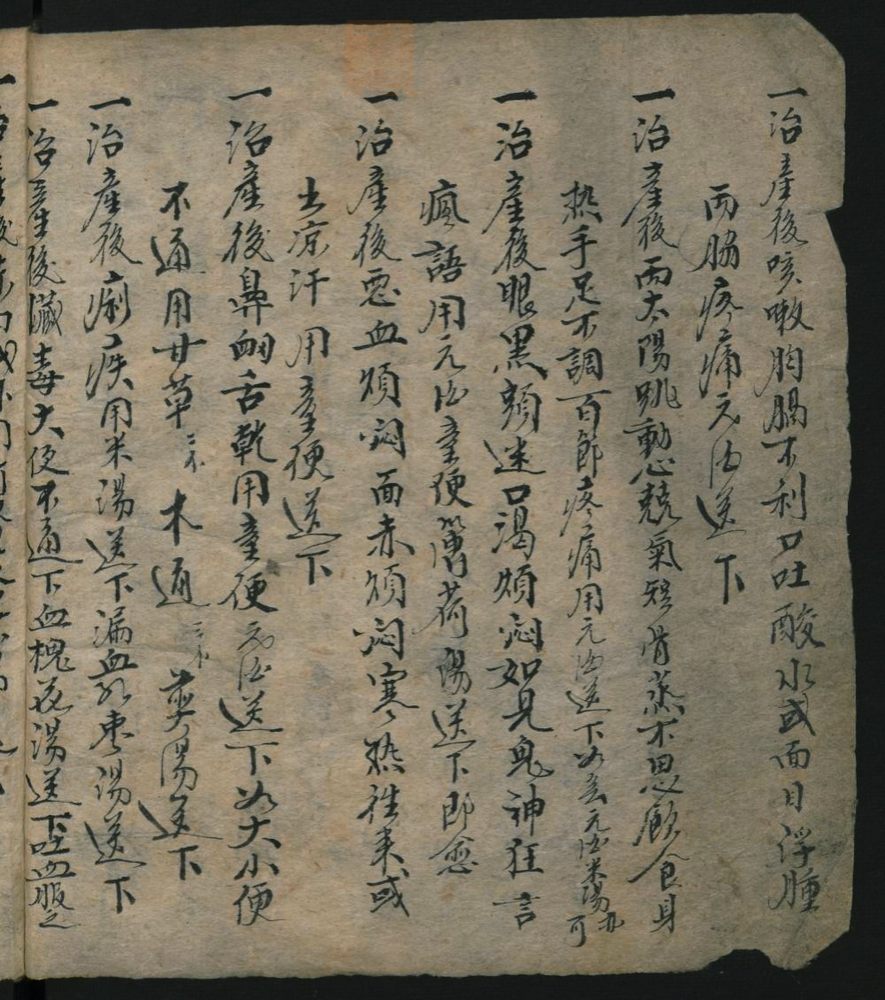 一治產後咳嗽胸膈不利口吐酸水或面目浮腫
兩脇疼痛元酒送下
一治產後兩太陽跳動心兢氣短骨蒸不思飲食身
热手足不調百節疼痛用元酒送下如無元酒米湯亦可
一治產後眼黑頭迷口渴煩悶如見鬼神狂言
瘋語用元酒童便薄荷湯送下即愈
一治產後惡血煩悶面赤煩悶寒热徃来或
出凉汗用童便送下
一治產後鼻衄舌乾用童便元酒送下如大小便
不通用甘草二木通三煎湯送下
一治產後痢疾用米湯送下漏血紅棗湯送下
一治產後臟毒大便不通下血槐花湯送下吐血服之